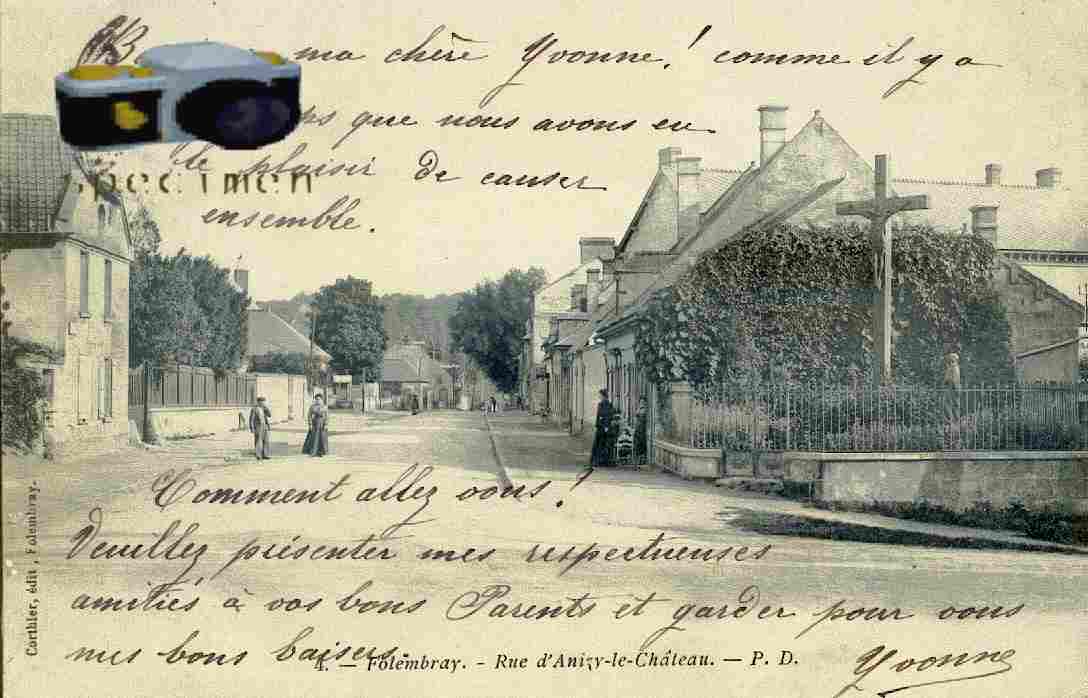 ma chère Yvonne! comme il y a
que nous avons eu
le plaisir de causer
specimen
ensemble.
Comment allez vous!
Veuillez présenter mes respectueuses
amitiés à vos bons Parents et garder pour vous
mes bons baisers.
Yvonne
4. — Folembray. - Rue d'Anizy-le-Château. — P. D.
Corthier, édit, Folembray.